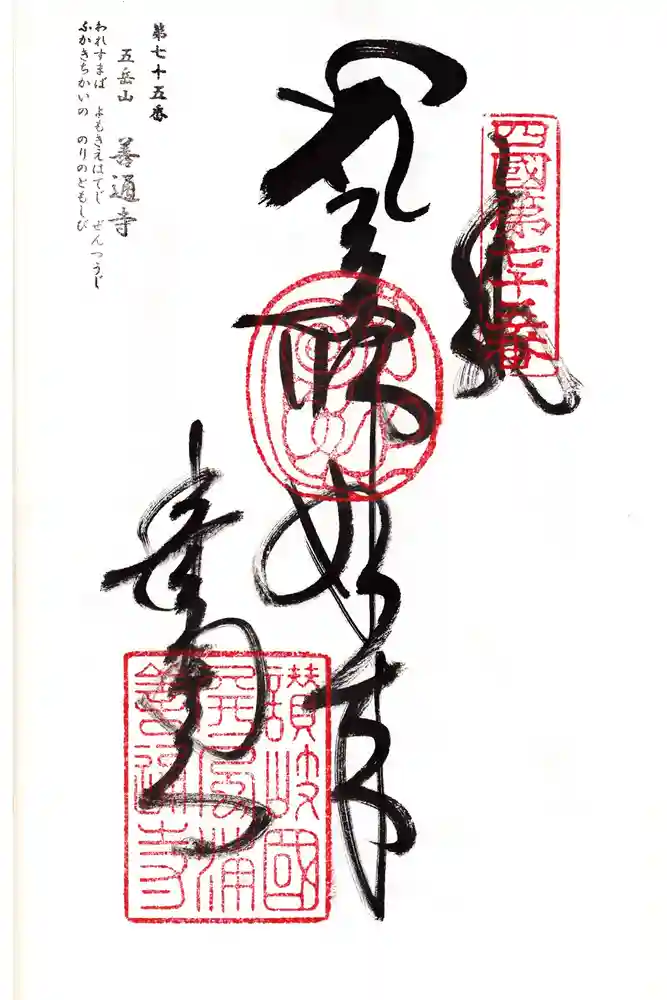 四國第七十五番
薬師如来
善通寺
讃岐國
屏風浦
善通寺
第七十五番
五岳山 善通寺
われすまば よもきえはてじ ぜんつうじ
ふかきちかいの のりのともしび